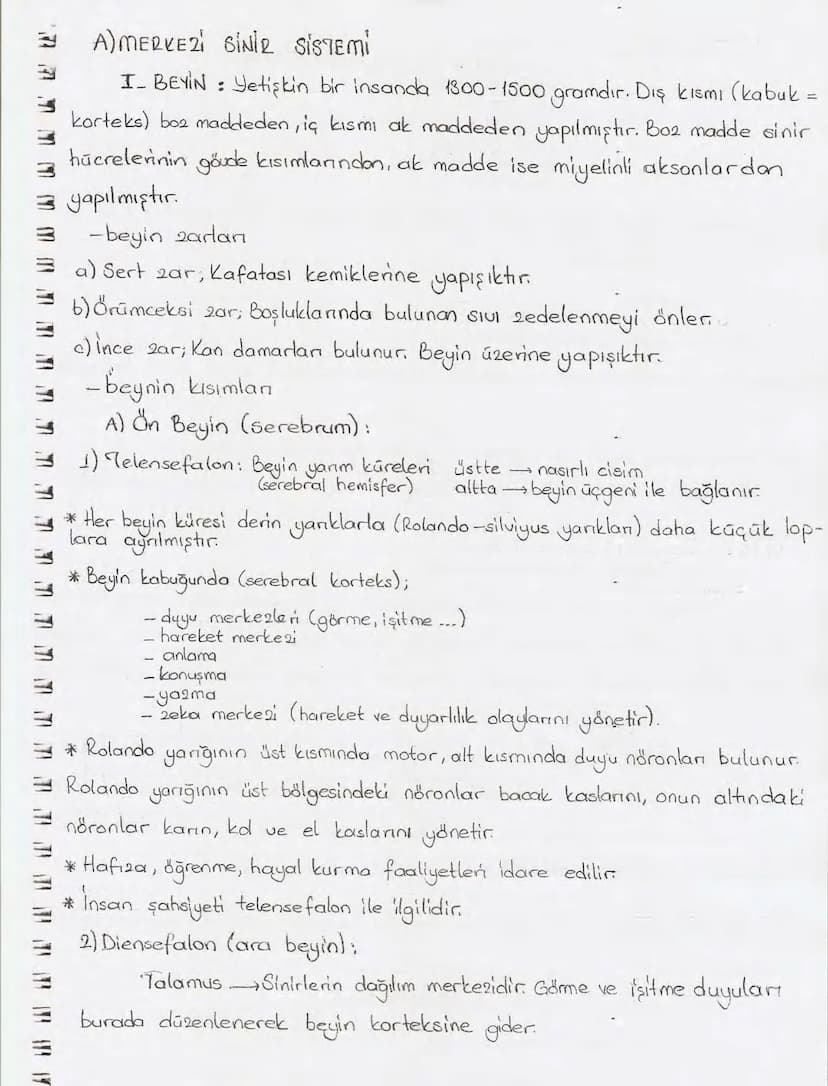 A) MERKEZİ SİNİR SİSTEMİ
I- BEYİN : Yetişkin bir insanda 1300-1500 gramdır. Dış kısmı (kabuk =
korteks) boz maddeden, iç kısmı ak maddeden yapılmıştır. Boz madde sinir
hücrelerinin gövde kısımlarından, ak madde ise miyelinli aksonlardan
yapılmıştır.
- beyin zarları
a) Sert zar; Kafatası kemiklerine yapışıktır.
b) Örümceksi zar; Boşluklarında bulunan sıvı zedelenmeyi önler.
c) İnce zar; Kan damarları bulunur. Beyin üzerine yapışıktır.
- beynin kısımları
A) Ön Beyin (serebrum) :
1) Telensefalon: Beyin yarım küreleri üstte → nasırlı cisim
(serebral hemisfer) altta → beyin üçgeni ile bağlanır.
* Her beyin küresi derin yarıklarla (Rolando-silviyus yarıkları) daha küçük lop-
lara ayrılmıştır.
* Beyin kabuğunda (serebral korteks);
- duyu merkezleri (görme, işitme ...)
- hareket merkezi
- anlama
- konuşma
- yazma
- zeka merkezi (hareket ve duyarlılık olaylarını yönetir).
* Rolando yarığının üst kısmında motor, alt kısmında duyu nöronları bulunur.
Rolando yarığının üst bölgesindeki nöronlar bacak kaslarını, onun altındaki
nöronlar karın, kol ve el kaslarını yönetir.
* Hafıza, öğrenme, hayal kurma faaliyetleri idare edilir.
* İnsan şahsiyeti telensefalon ile ilgilidir.
2) Diensefalon (ara beyin) ;
Talamus → Sinirlerin dağılım merkezidir. Görme ve işitme duyuları
burada düzenlenerek beyin korteksine gider.